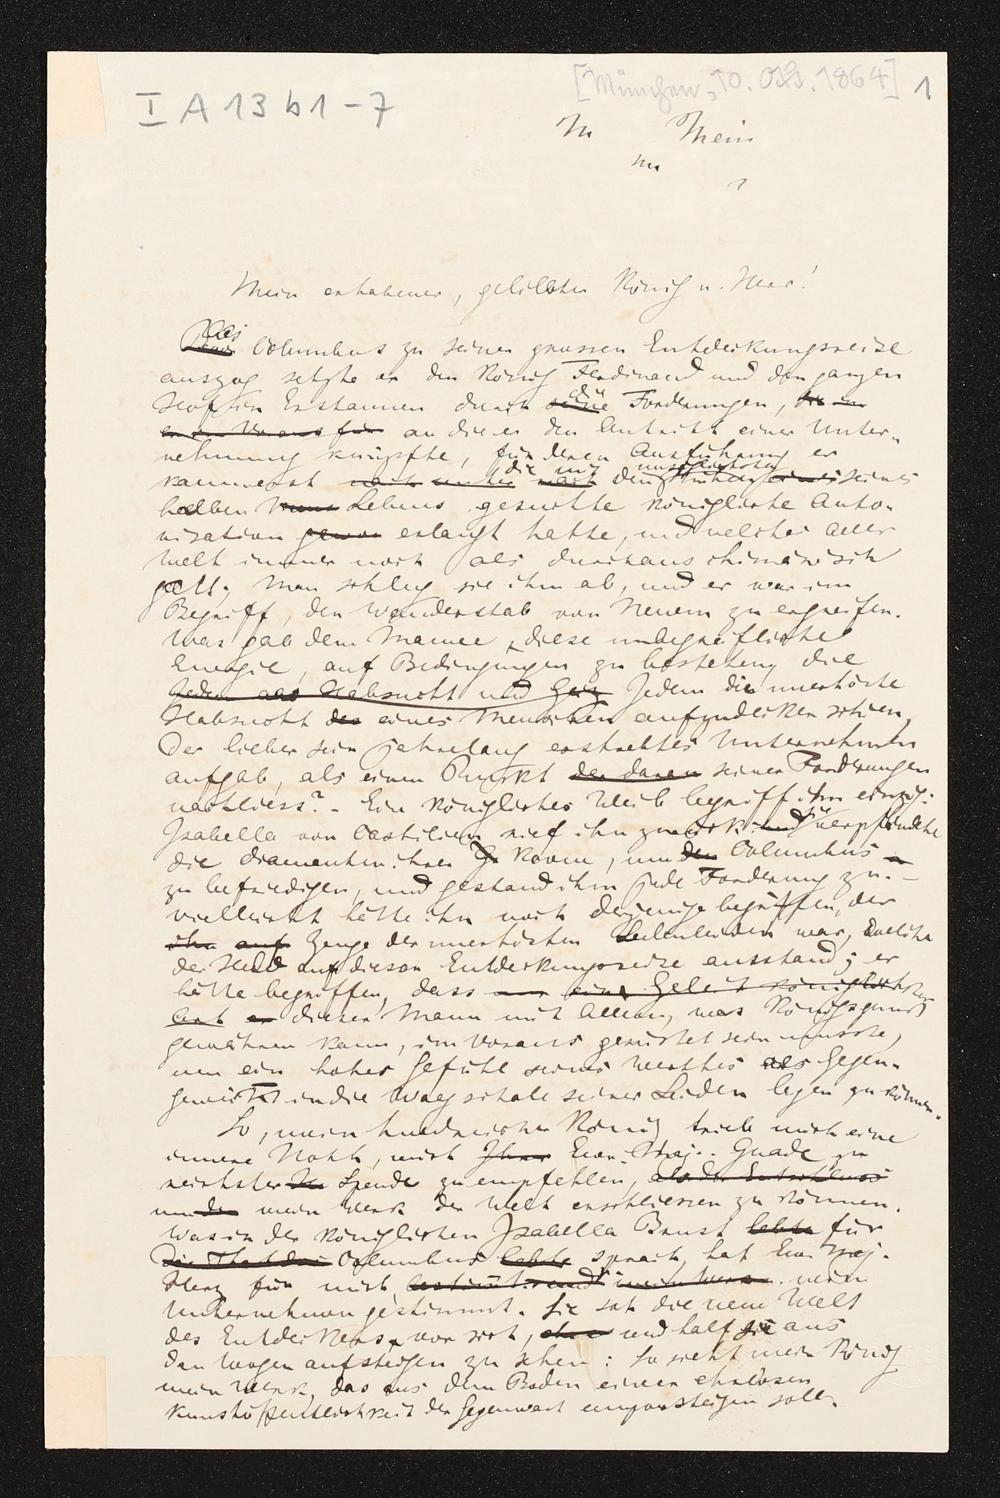 I A 13 b1-7
[München, 10. Okt. 1864] 1
M Mein
m
Mein erhabener, geliebter König u. Herr!
Als
Columbus zu seiner grossen Entdeckungsreise
auszog setzte er den König Ferdinand und den ganzen
Hof in Erstaunen durch die Forderungen,
er im Voraus für an die er den Antritt einer Unter-
nehmung knüpfte, für deren Ausführung er
die mit
kaum erst nach unter nach den Mühen seines
halben Lebens gesuchte königliche Auto-
risation erlangt hatte, und welche aller
Welt immer noch als durchaus chimärisch
galt. Man schlug sie ihm ab, und er war im
Begriff, den Wanderstab von Neuem zu ergreifen.
Was gab dem Manne diese unbegreifliche
Energie, auf Bedingungen zu bestehen, die
Jedem als Habsucht und Geiz Jedem die unerhörte
Habsucht des eines Menschen aufzudecken schien,
Der lieber sein jahrelang erstrebtes Unternehmen
aufgab, als einen Punkt der daran seiner Forderungen
nachliess? - Ein königliches Weib begriff ihn einzig:
Isabella von Castilien rief ihn zurück und verpfändete
die Diamanten ihrer Krone, um den Columbus
zu befriedigen, und gestand ihm jede Forderung zu. -
vielleicht hätte ihn noch derjenige begriffen, der
ihn auf Zeuge der unerhörten Leiden war, welche
der Held auf dieser Entdeckungsreise ausstand; er
hätte begriffen, dass eine Geleit königlichster
Art er dieser Mann mit Allem, was Königsgunst
gewähren kann, im Voraus gerüstet sein musste,
um ein hohes Gefühl seines Werthes als Gegen-
gewicht in die Wagschale seiner Leiden legen zu können.
So, mein huldreicher König trieb mich eine
innere Noth, mich Ihrer Euer. Maj. Gnade zu
reichster Spende zu empfehlen, als der Entschluss
um mein Werk der Welt erschliessen zu können.
Was in der königlichen Isabella Brust lebte für
Die That des Columbus lebte sprach, hat Eur. Maj.
Herz für mich bestimmt und mein Werk. mein
Unternehmen gestimmt. Sie sah die neue Welt
des Entdeckers vor sich, und half sie aus
den Wogen aufsteigen zu sehen: so sieht mein König
mein Werk, das aus dem Boden einer ehrlosen
Kunstöffentlichkeit der Gegenwart emporsteigen soll.